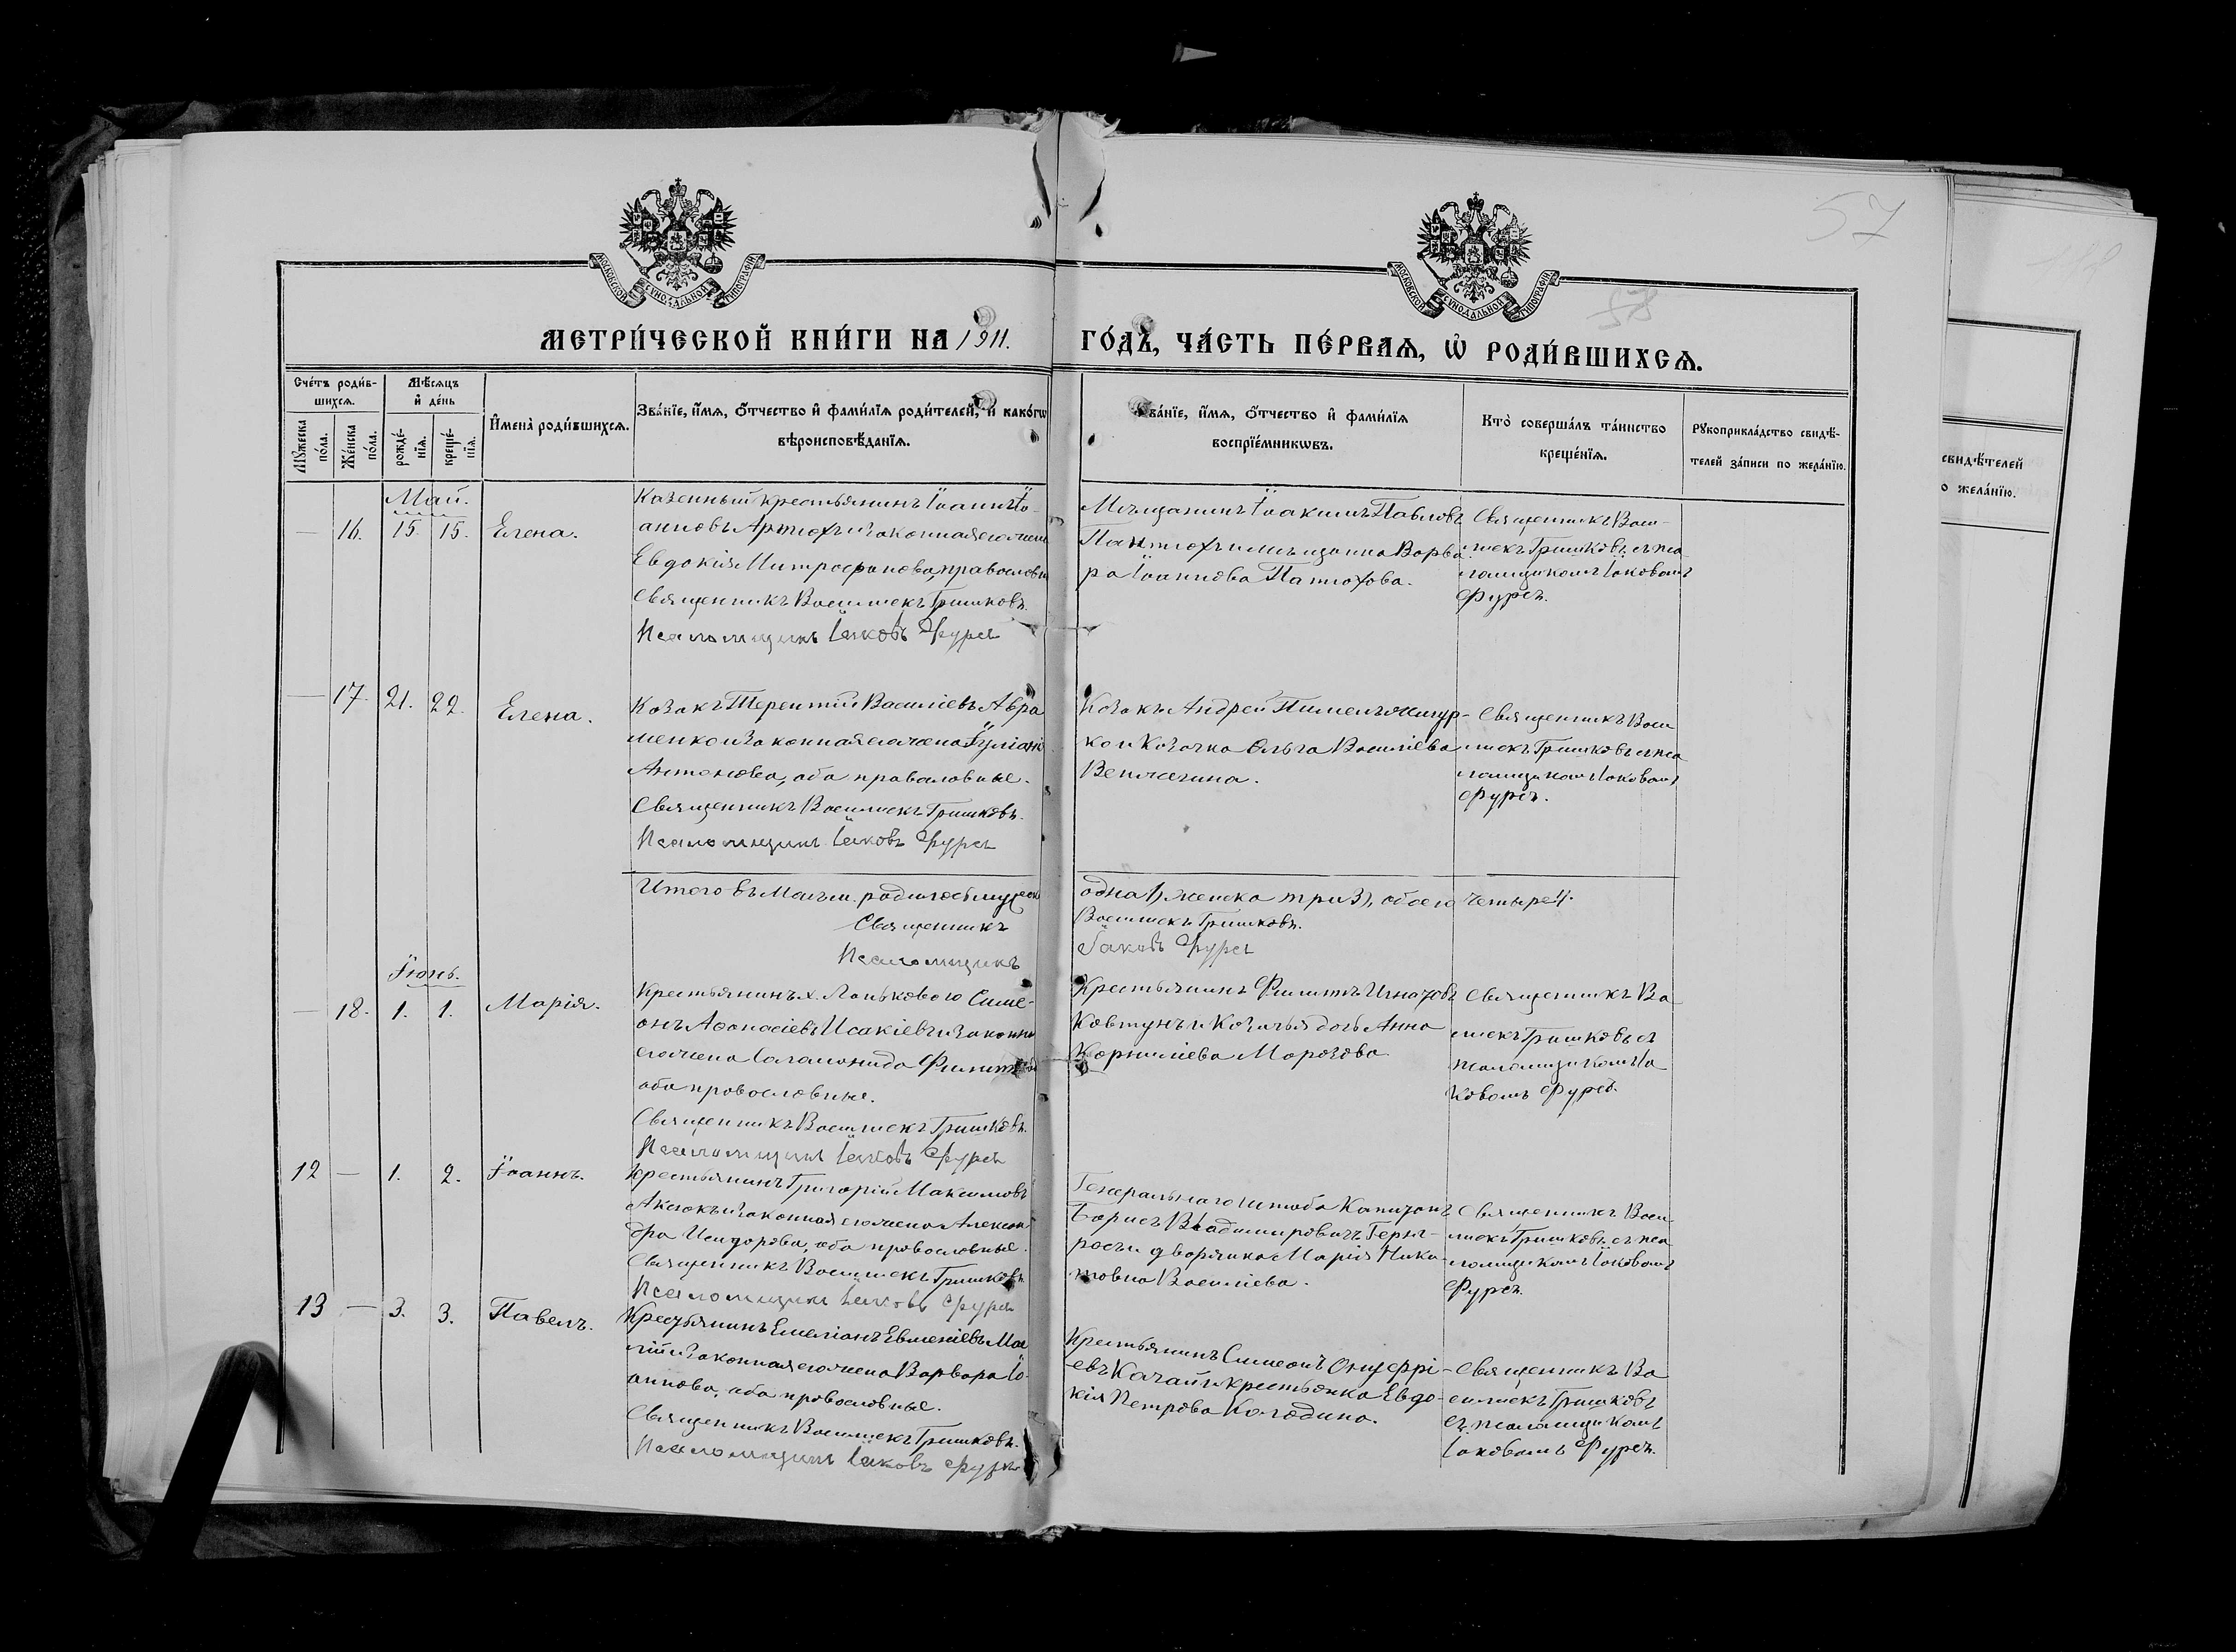 МОСКОВСКОЙ СѴНОДАЛЬНОЙ ТИПОГРАФІИ
МОСКОВСКОЙ СѴНОДАЛЬНОЙ ТИПОГРАФІИ
57
58
МЕТРИ́ЧЕСКОЙ КНИ́ГИ НА 1911. ГО́ДЪ, ЧА́СТЬ ПЕ́РВАѦ, Ѡ҆ РОДИ́ВШИХСѦ.
Сче́тъ роди́в-
шихсѧ.
Мѹ́жеска по́ла.
Же́нска по́ла.
Мѣ́сѧцъ и҆ де́нь
рожде́нїѧ.
креще́нїѧ.
И҆мена̀ роди́вшихсѧ.
Зва́нїе, и҆́мѧ, ѻ҆́тчество и҆ фами́лїѧ роди́телей, и҆ како́гѡ
вѣроисповѣ́данїѧ.
Зва́нїе, и҆́мѧ, ѻ҆́тчество и҆ фами́лїѧ
воспрїе́мникѡвъ.
Кто̀ соверша́лъ та́инство
креще́нїѧ.
Рѹкоприкла́дство свидѣ́-
телей за́писи по жела́нїю.
свидѣ́телей
о жела́нїю.
Май.
— 16. 15. 15. Елена.
Казенный крестьянинъ Іоаннъ Іо-
анновъ Артюхъ и законная его жена
Евдокія Митрофанова, православн
Священникъ Василискъ Гришковъ.
Псаломщикъ Іаковъ Фурса
Мѣщанинъ Іоакимъ Павловъ
Пантюхъ и мѣщанка Варва-
ра Іоаннова Пантюхова.
Священникъ Васи-
лискъ Гришковъ съ пса-
ломщикомъ Іаковомъ
Фурса.
— 17. 21. 22. Елена.
Козакъ Терентій Василіевъ Авра
менко и законная его жена Іуліанія
Антонова, оба православные.
Священникъ Василискъ Гришковъ.
Псаломщикъ Іаковъ Фурса
Козакъ Андрей
ко и Козачка Ольга Василіева
Священникъ Васи
лискъ Гришковъ съ пса
ломщикомъ Іаковомъ
Фурса.
Итого въ Маѣ м. родилось мужеска
одна 1, женска три 3, обоего четыре 4.
Священникъ Василискъ Гришковъ.
Псаломщикъ Іаковъ Фурса
Іюнь.
— 18. 1. 1. Марія.
Крестьянинъ х. Ланькового Симе-
онъ Аѳанасіевъ Исакіевъ и законная
его жена Саламонида Филиппова
оба православные.
Священникъ Василискъ Гришковъ.
Псаломщикъ Іаковъ Фурса
Крестьянинъ Филиппъ Игнатовъ
Ковтунъ и Козачья дочь Анна
Корниліева Морозова
Священникъ Ва
силискъ Гришковъ съ
псаломщикомъ Іа
ковомъ Фурса.
12 — 1. 2. Іоаннъ.
Крестьянинъ Григорій Максимовъ
Аксюкъ и законная его жена Алексан
дра Исидорова, оба православные.
Священникъ Василискъ Гришковъ
Псаломщикъ Іаковъ Фурса
Генеральнаго штаба Капитанъ
Борисъ Владимировичъ Геруа-
и дворянка Марія Ника-
Василіева.
Священникъ Васи-
лискъ Гришковъ съ пса
ломщикомъ Іаковомъ
Фурса.
13 — 3. 3. Павелъ.
Крестьянинъ Емеліанъ Евменіевъ
и законная его жена Варвара Іо-
аннова, оба православные.
Священникъ Василискъ Гришковъ.
Псаломщикъ Іаковъ Фурса
Крестьянинъ Симеонъ Онуфрі-
евъ Качай и крестьянка Евдо-
кія Петрова Колодина.
Священникъ Ва
силискъ Гришковъ
съ псаломщикомъ
Іаковомъ Фурса.